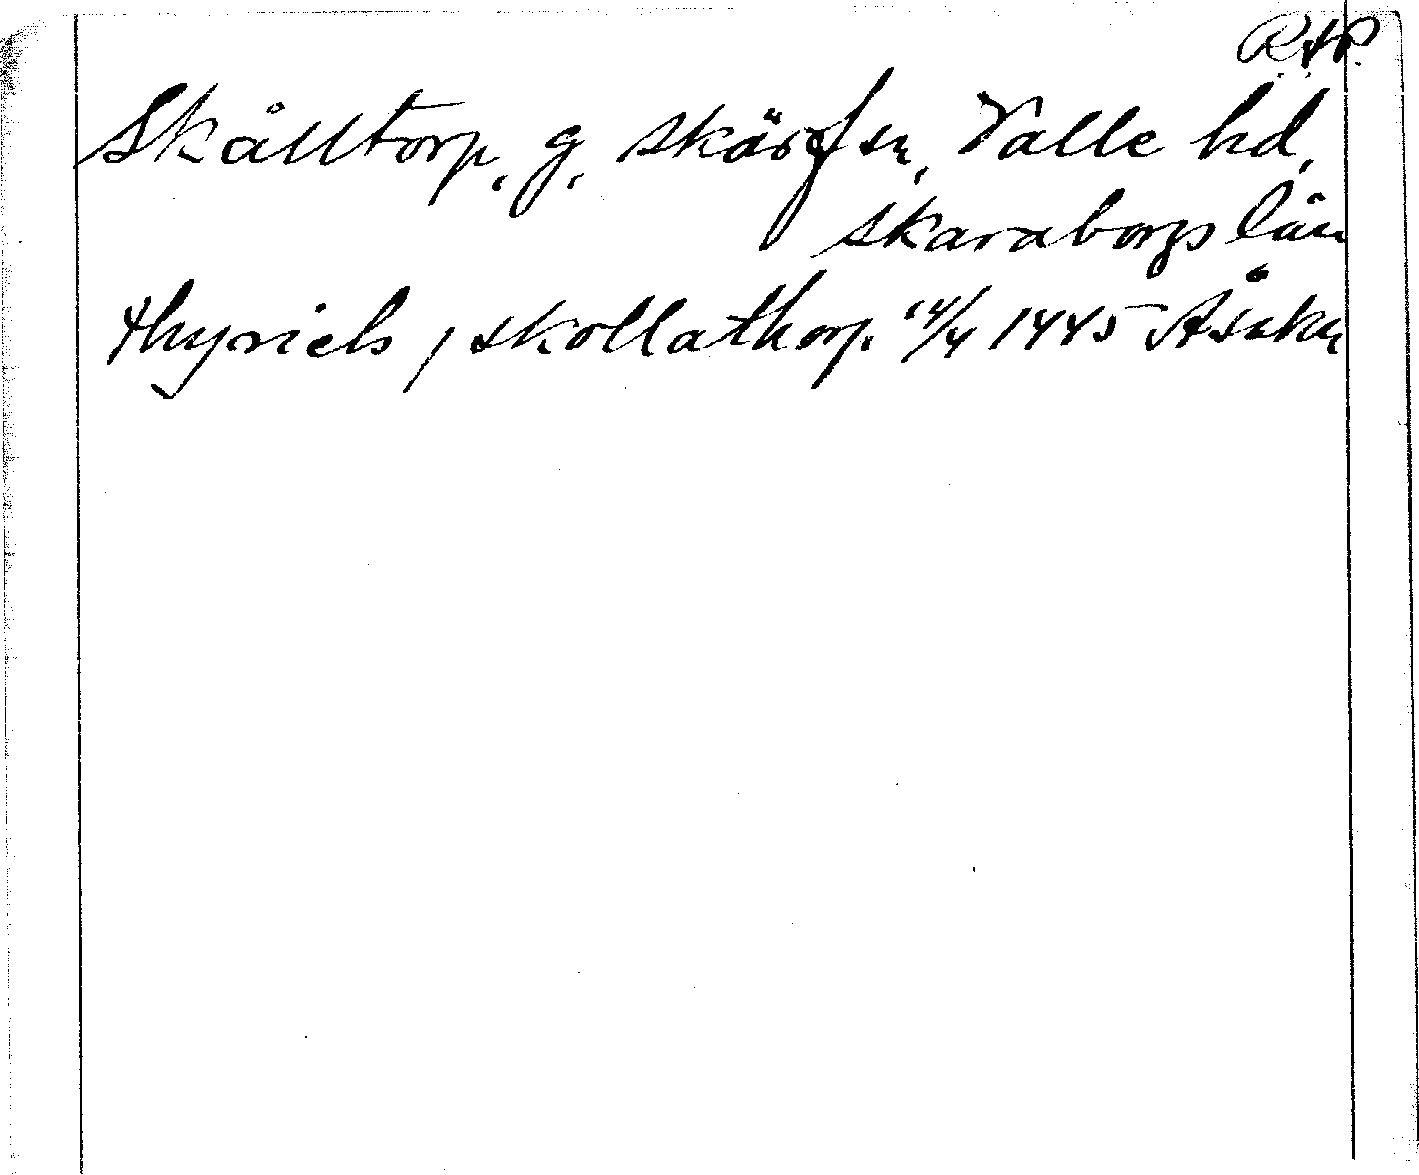 R.A.P.
Skålltorp, g. Skärfsn, Valle hd,
Skaraborgs län
thyrichs j skollathorp 14/4 1445 Åsaka